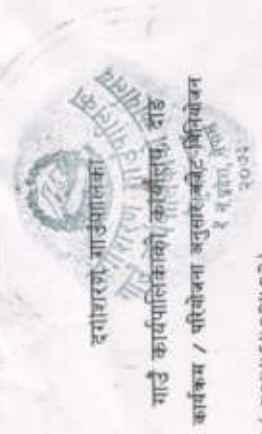 दंगीशरण गाउँपालिका
गाउँ कार्यपालिकाको कार्यालय, दाङ
कार्यक्रम / परियोजना अनुसार बजेट बिनियोजन
२०७३